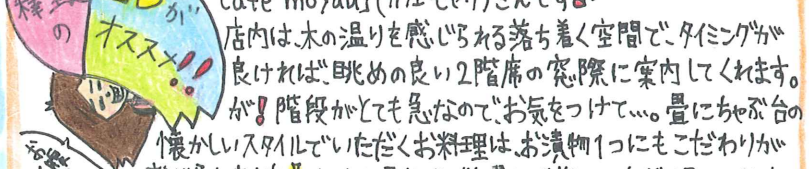 オススメ!!
が
の
店内は、木の温りを感じられる落ち着く空間で、タイミングが
良ければ、眺めの良い2階席の窓際に案内してくれます。
が!階段がとても急なので、お気をつけて…。畳にちゃぶ台の
懐かしいスタイルでいただくお料理は、お漬物1つにもこだわりが